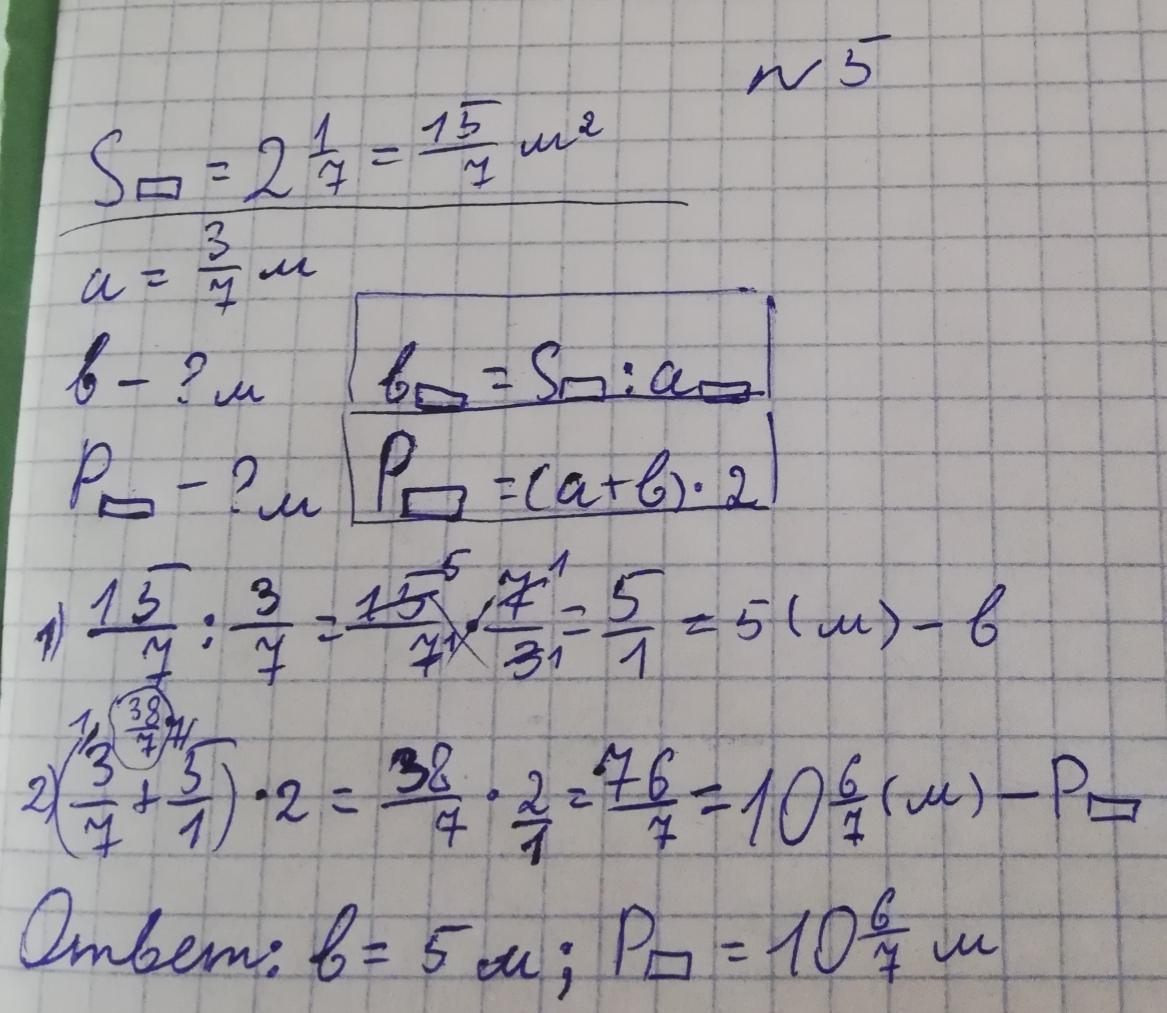 № 5
S▭ = 2 1/7 = 15/7 м²
a = 3/7 м
в – ? м
в▭ = S▭ : a▭
P▭ – ? м
P▭ = (a+в) · 2
1) 15/7 : 3/7 = 15⁵/7¹ · 7¹/3₁ = 5/1 = 5 (м) – в
1) 38/7 7/
2) (3/7 + 5/1) · 2 = 38/7 · 2/1 = 76/7 = 10 6/7 (м) – P▭
Ответ: в = 5 м; P▭ = 10 6/7 м